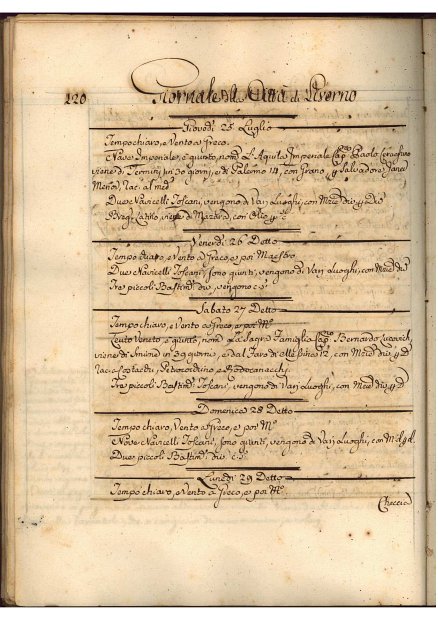 220
Giornale della Città di Livorno
Giovedì 25 Luglio
Tempo chiaro, e Vento a Greco.
Nave Imperiale, è giunto, nom.ª L'Aquila Imperiale Cap.no Paolo
viene di Termini in 30 giorni, e di Palermo 14, con Grano, p Salvadore
Menor, rac: al med.
Due Navicelli Toscani, vengono di Varj Luoghi, con Merc: div: p Div:
Brig: Latino viene di Mazara, con Olio p
Venerdì 26 Detto
Tempo chiaro, e Vento a Greco, e poi Maestro
Due Navicelli Toscani, sono giunti, vengono di Varj Luoghi, con Merc: div:
Tre piccoli Bastim.ti div: vengono c: s:
Sabato 27 Detto
Tempo chiaro, e Vento a Greco, e poi M.º
Veneto è giunto, nom.º La Sagra Famiglia Cap.no Bernardo
viene di Smirne in 39 giorni, e dal Faro di 12, con Merc: div: p D
rac: a Costachi, Petrocochino e Rodocanacchj
Tre piccoli Bastim.ti Toscani, vengono di Varj Luoghi, con Merc: div: p D
Domenica 28 Detto
Tempo chiaro, Vento a Greco, e poi M.º
Nove Navicelli Toscani, sono giunti, vengono di Varj Luoghi, con M: d: p d:
Due piccoli Bastim.ti div: c: s:
Lunedì 29 Detto
Tempo chiaro, e Vento a Greco, e poi M.º